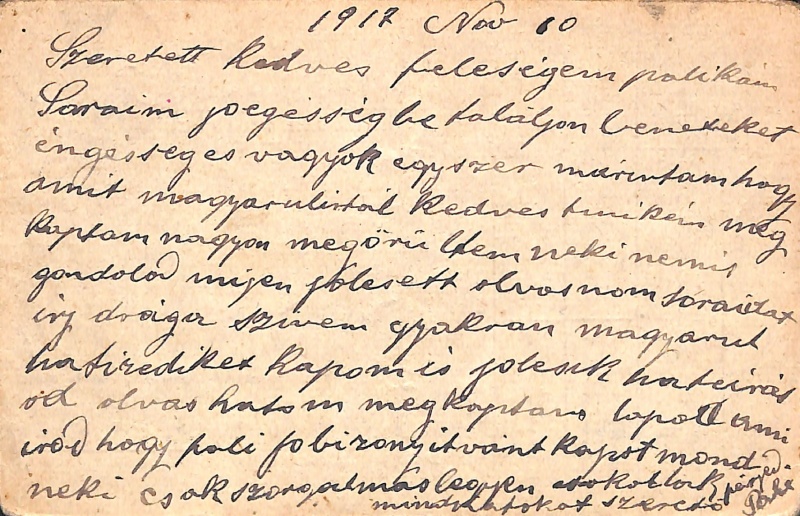 1917 Nov 10
Szeretett kedves feleségem palikám
Soraim joegésségbe találjon beneteket
éngésséges vagyok egyszer márirtam hogy
amit magyarulirtál kedves meg
kaptam nagyon megörültem neki nemis
gondolod mijen jólesett olvasnom soraidat
irj drága szivem gyakran magyarul
hatizediket kapom is jolesik hateirás
od olvashatom megkaptam lapod ami
irod hogy pali jobizonyitvánt kapot mond
neki csak szorgalmas legyen csokollak
mindnyátokat szerető férjed